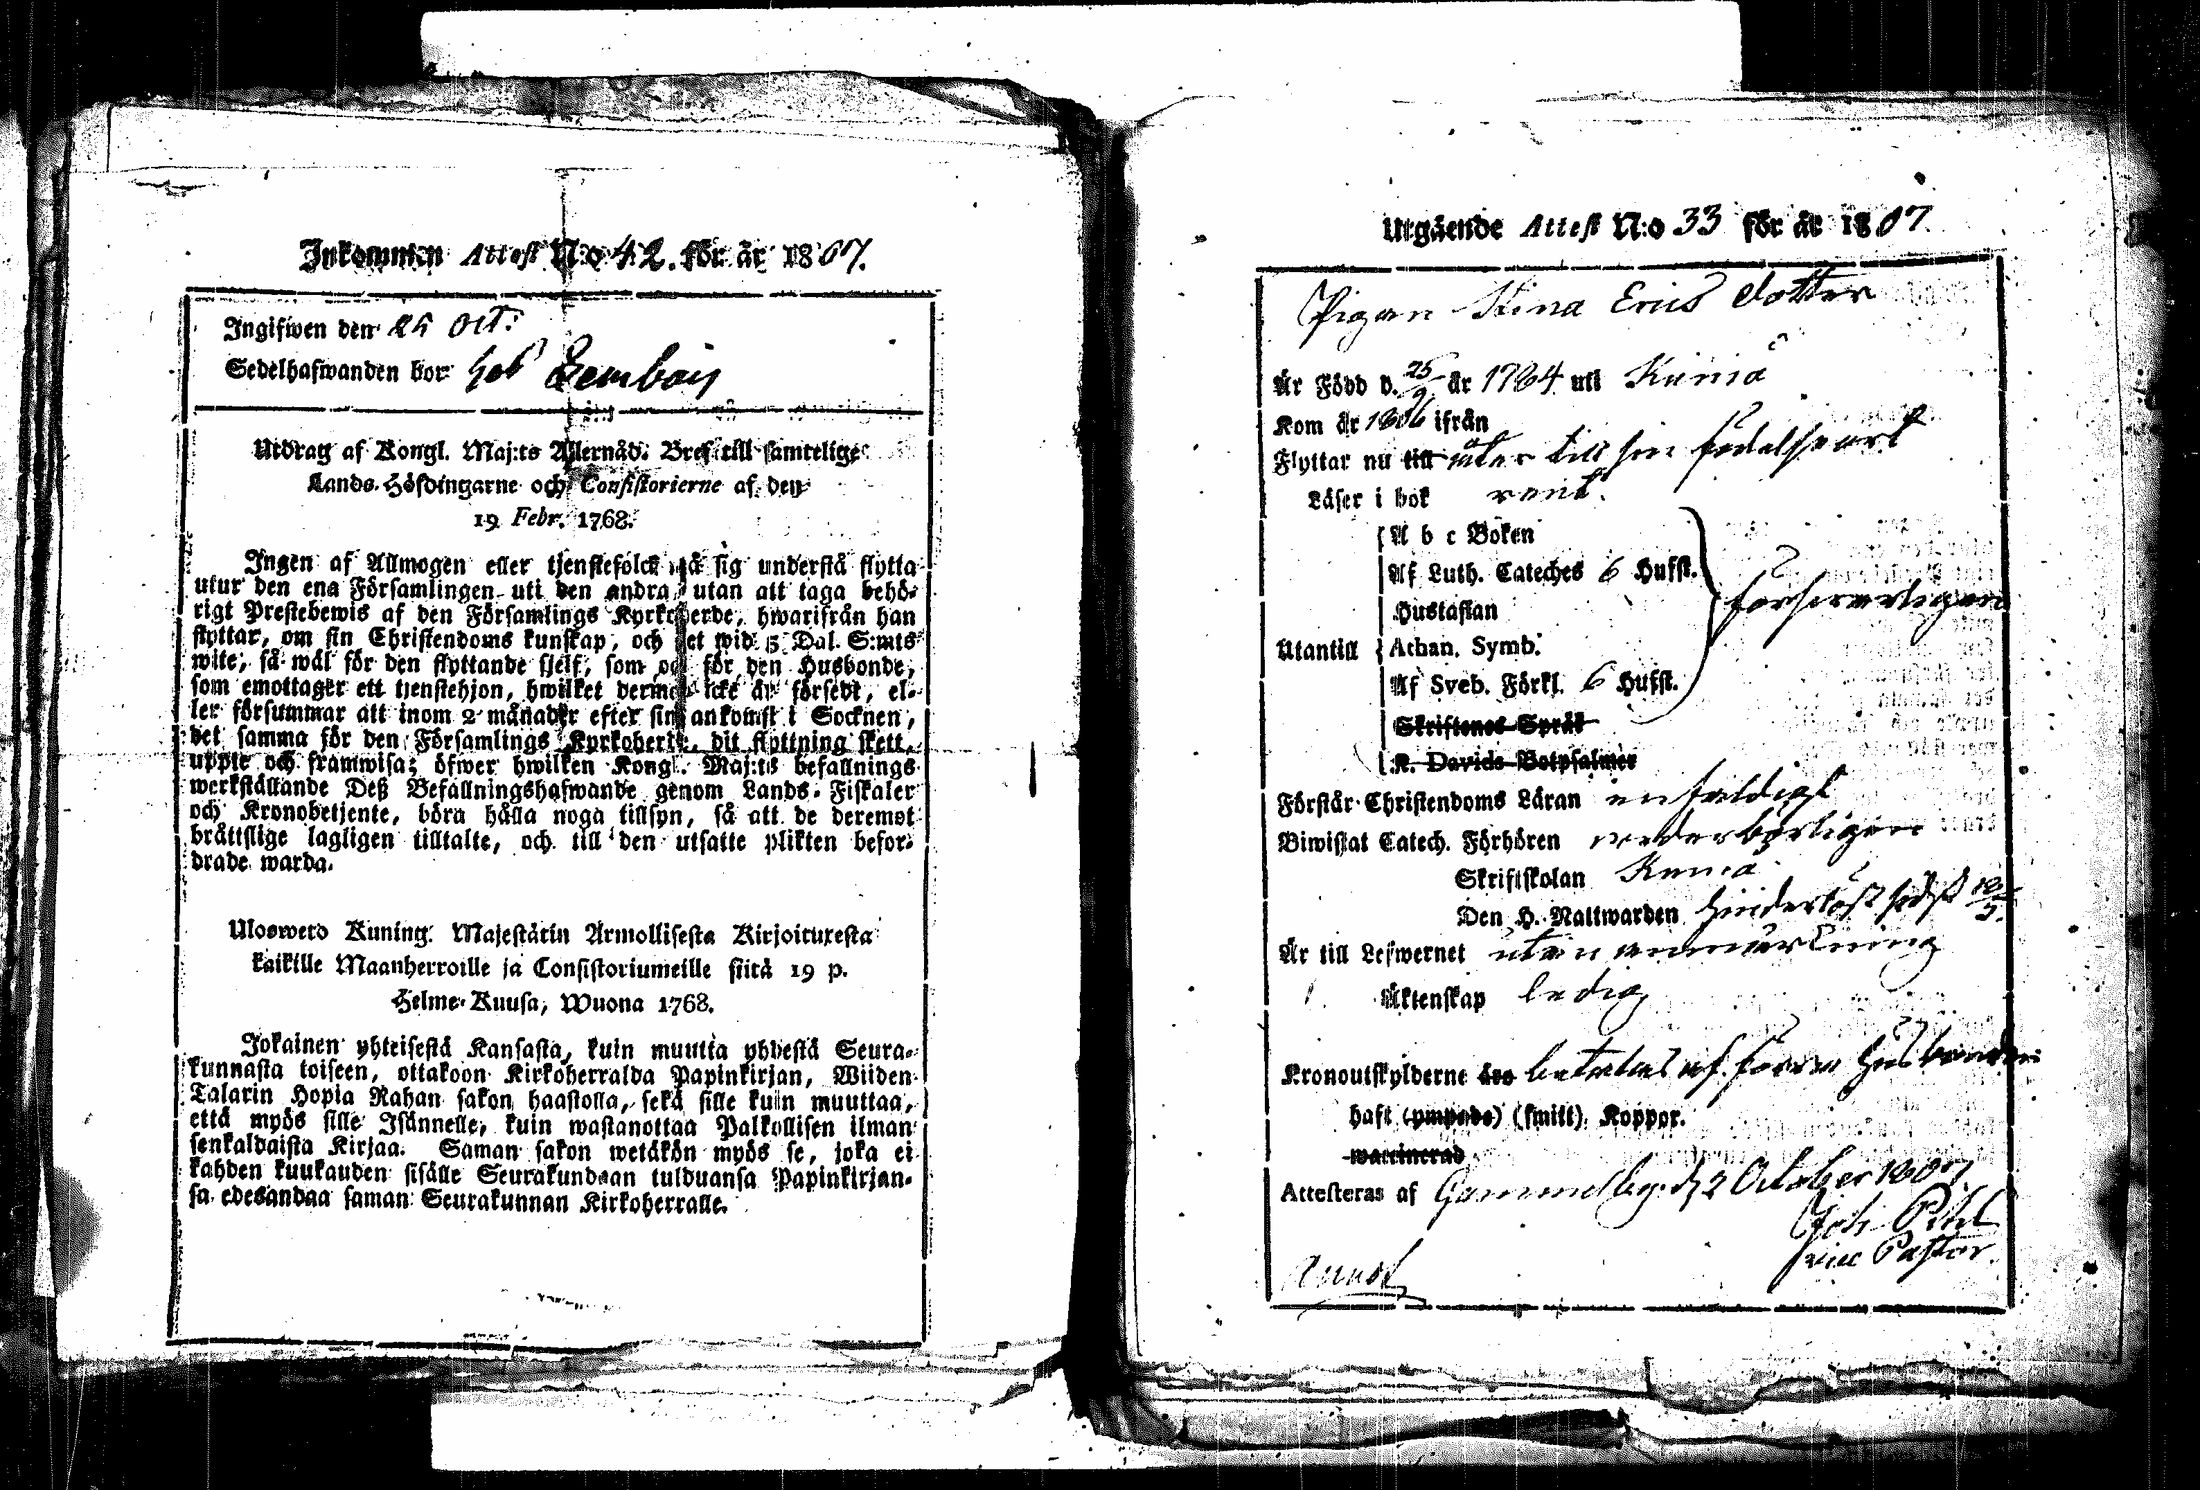 Inkommen Attest N:o 42. för år 1807.
Ingifwen den 25 Oct:
Sedelhafwanden bor hos
Utdrag af Kongl. Maj:ts Allernåd. Bref till samtelige
Lands-Höfdingarne och Consistorierne af den
19 Febr. 1768.
Ingen af Allmogen eller tjenstefolck må sig understå flytta
utur den ena Församlingen uti den andra, utan att taga behö-
rigt Prestebewis af den Församlings Kyrkoherde, hwarifrån han
flyttar, om sin Christendoms kunskap, och det wid 5 Dal. S:mts
wite, så wäl för den flyttande sjelf, som och för den Husbonde,
som emottager ett tjenstehjon, hwilket dermed icke är försedt, el-
ler försummar att inom 2 månader efter sin ankomst i Socknen,
det samma för den Församlings Kyrkoherde, dit flyttning skett,
uppte och framwisa; öfwer hwilken Kongl. Maj:ts befallnings
werkställande Deß Befallningshafwande genom Lands-Fiskaler
och Kronobetjente, böra hålla noga tillsyn, så att de deremot
bråttslige lagligen tilltalte, och till den utsatte plikten befor-
drade warda.
Uloswero Kuning. Majestätin Armollisesta Kirjoituxesta
kaikille Maanherroille ja Consistoriumeille siitä 19 p.
Helme-Kuusa, Wuona 1768.
Jokainen yhteisestä Kansasta, kuin muutta yhdestä Seura-
kunnasta toiseen, ottakoon Kirkoherralda Papinkirjan, Wiiden
Talarin Hopia Rahan sakon haastolla, sekä sille kuin muuttaa,
että myös sille Isännelle, kuin wastanottaa Palkollisen ilman
senkaldaista Kirjaa. Saman sakon wetäkön myös se, joka ei
kahden kuukauden sisälle Seurakundaan tulduansa Papinkirjan-
sa edesandaa saman Seurakunnan Kirkoherralle.
Utgående Attest N:o 33 för år 1807
Pigan Stina Erics dotter
Är Född d. 25/9 år 1784 uti Kumå
Kom år 1806 ifrån
Flyttar nu till åter till sin födelseort
Läser i bok rent.
A b c Boken
Af Luth. Cateches 6 Hufst.
Hustaflan
försvarligen
Utantill Athan. Symb.
Af Sveb. Förkl. 6 Hufst.
Skriftenes Språk
K. Davids Botpsalmer
Förstår Christendoms Läran enfaldigt
Biwistat Catech. Förhören wederbörligen
Skriftskolan Kumå
Den H. Nattwarden hinderlöst sidst
Är till Lefwernet utan anmärkning
Äktenskap ledig
Kronoutskylderne äro betalas af förra Husbonden
haft (ympade) (smitt) Koppor.
waccinerad
Attesteras af Gammelby d. 2 October 1807.
Joh Pihl
vice Pastor